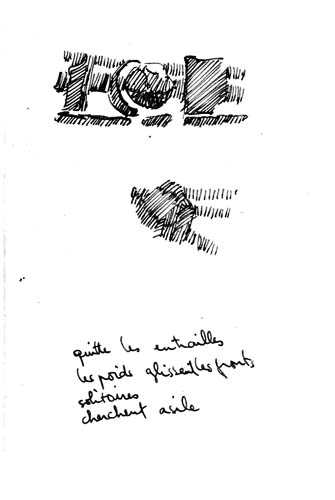 quitte les entrailles
les poids glissent les fronts
solitaires
cherchent asile